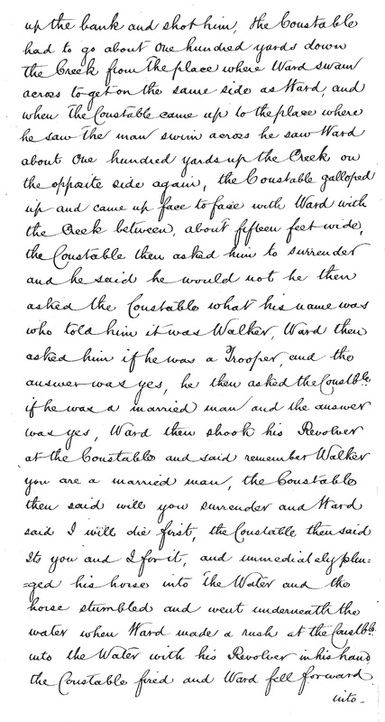 up the bank and shot him, the Constable
had to go about One hundred yards down
the Creek from the place where Ward swam
across to get on the same side as Ward, and
when the Constable came up to the place where
he saw the man swim across he saw Ward
about One hundred yards up the Creek on
the opposite side again, the Constable galloped
up and came up face to face with Ward with
the Creek between, about fifteen feet wide,
the Constable then asked him to surrender
and he said he would not he then
asked the Constable what his name was
who told him it was Walker, Ward then
asked him if he was a Trooper, and the
answer was yes, he then asked the Constble.
if he was a married man and the answer
was yes, Ward then shook his Revolver
at the Constable and said remember Walker
you are a married man, the Constable
then said will you surrender and Ward
said I will die first, the Constable then said
Its you and I for it, and immediately plun-
=ged his horse into the Water and the
horse stumbled and went underneath the
water when Ward made a rush at the Constble.
into the Water with his Revolver in his hand
the Constable fired and Ward fell forward
into-